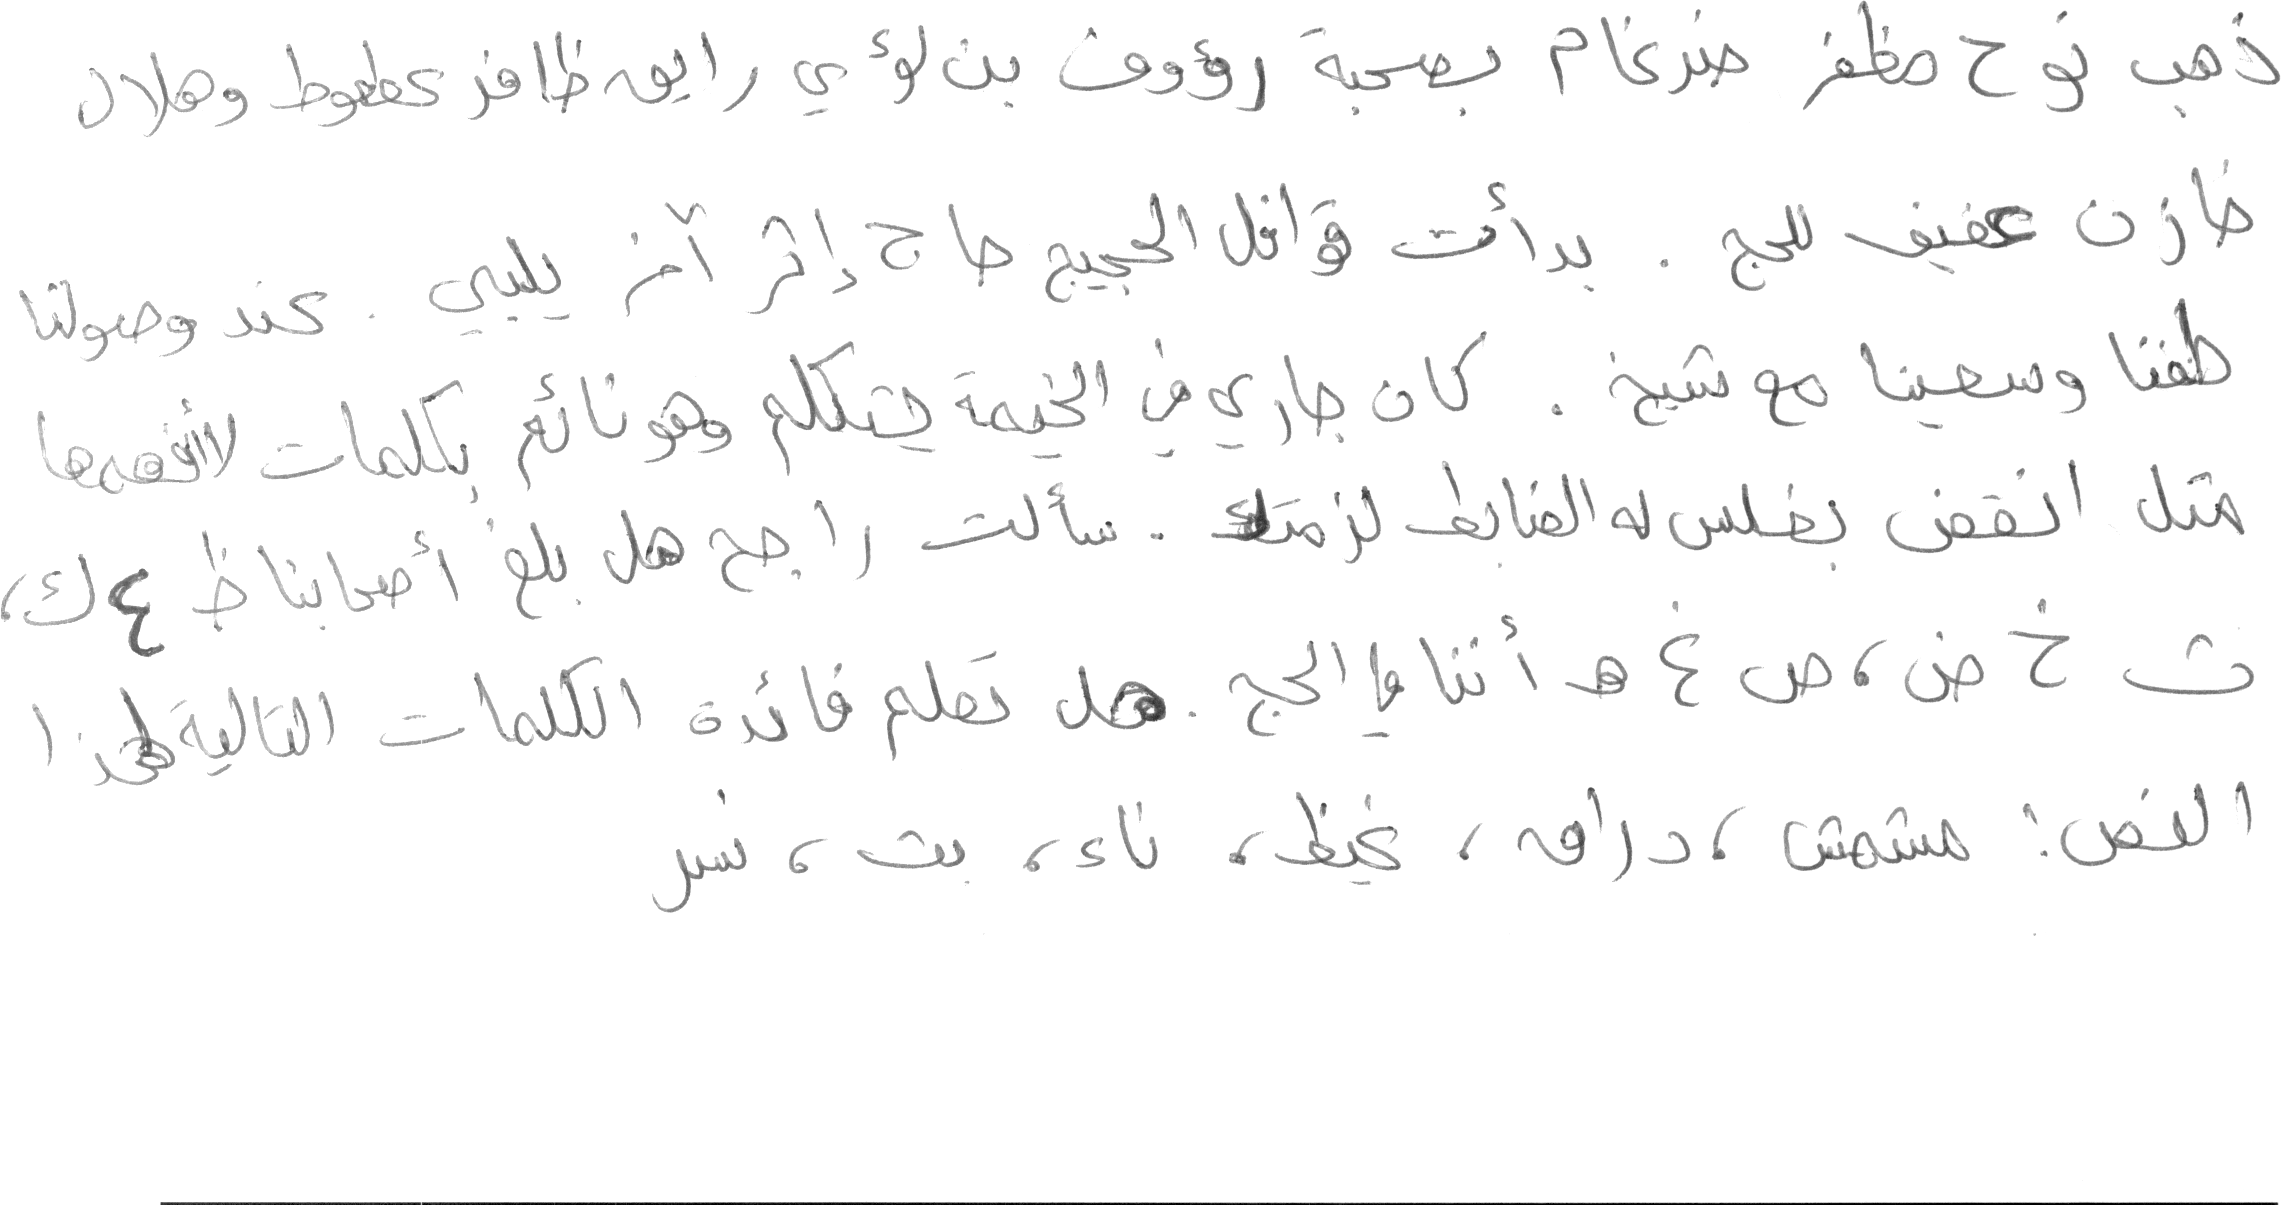 ذهب نوح مظفر ضرغام بصحبة رؤوف بن لؤي رايق ظافر عطعوط وهلال
خازن عفيف للحج . بدأت قوافل الحجيج حاج إثر آخر يلبي . عند وصولنا
طفنا وسعينا مع شيخ . كان جاري في الخيمة يتكلم وهو نائم بكلمات لا أفهمها
مثل انقض بغلس له الضابط لزمتك . سألت راجح هل بلغ أصحابنا ظ ع ك،
ث خ ض ، ص غ ه أثناء الحج . هل تعلم فائدة الكلمات التالية لهذا
النص : مشمش ، دراق ، غيظ ، ناء ، بث ، نسر